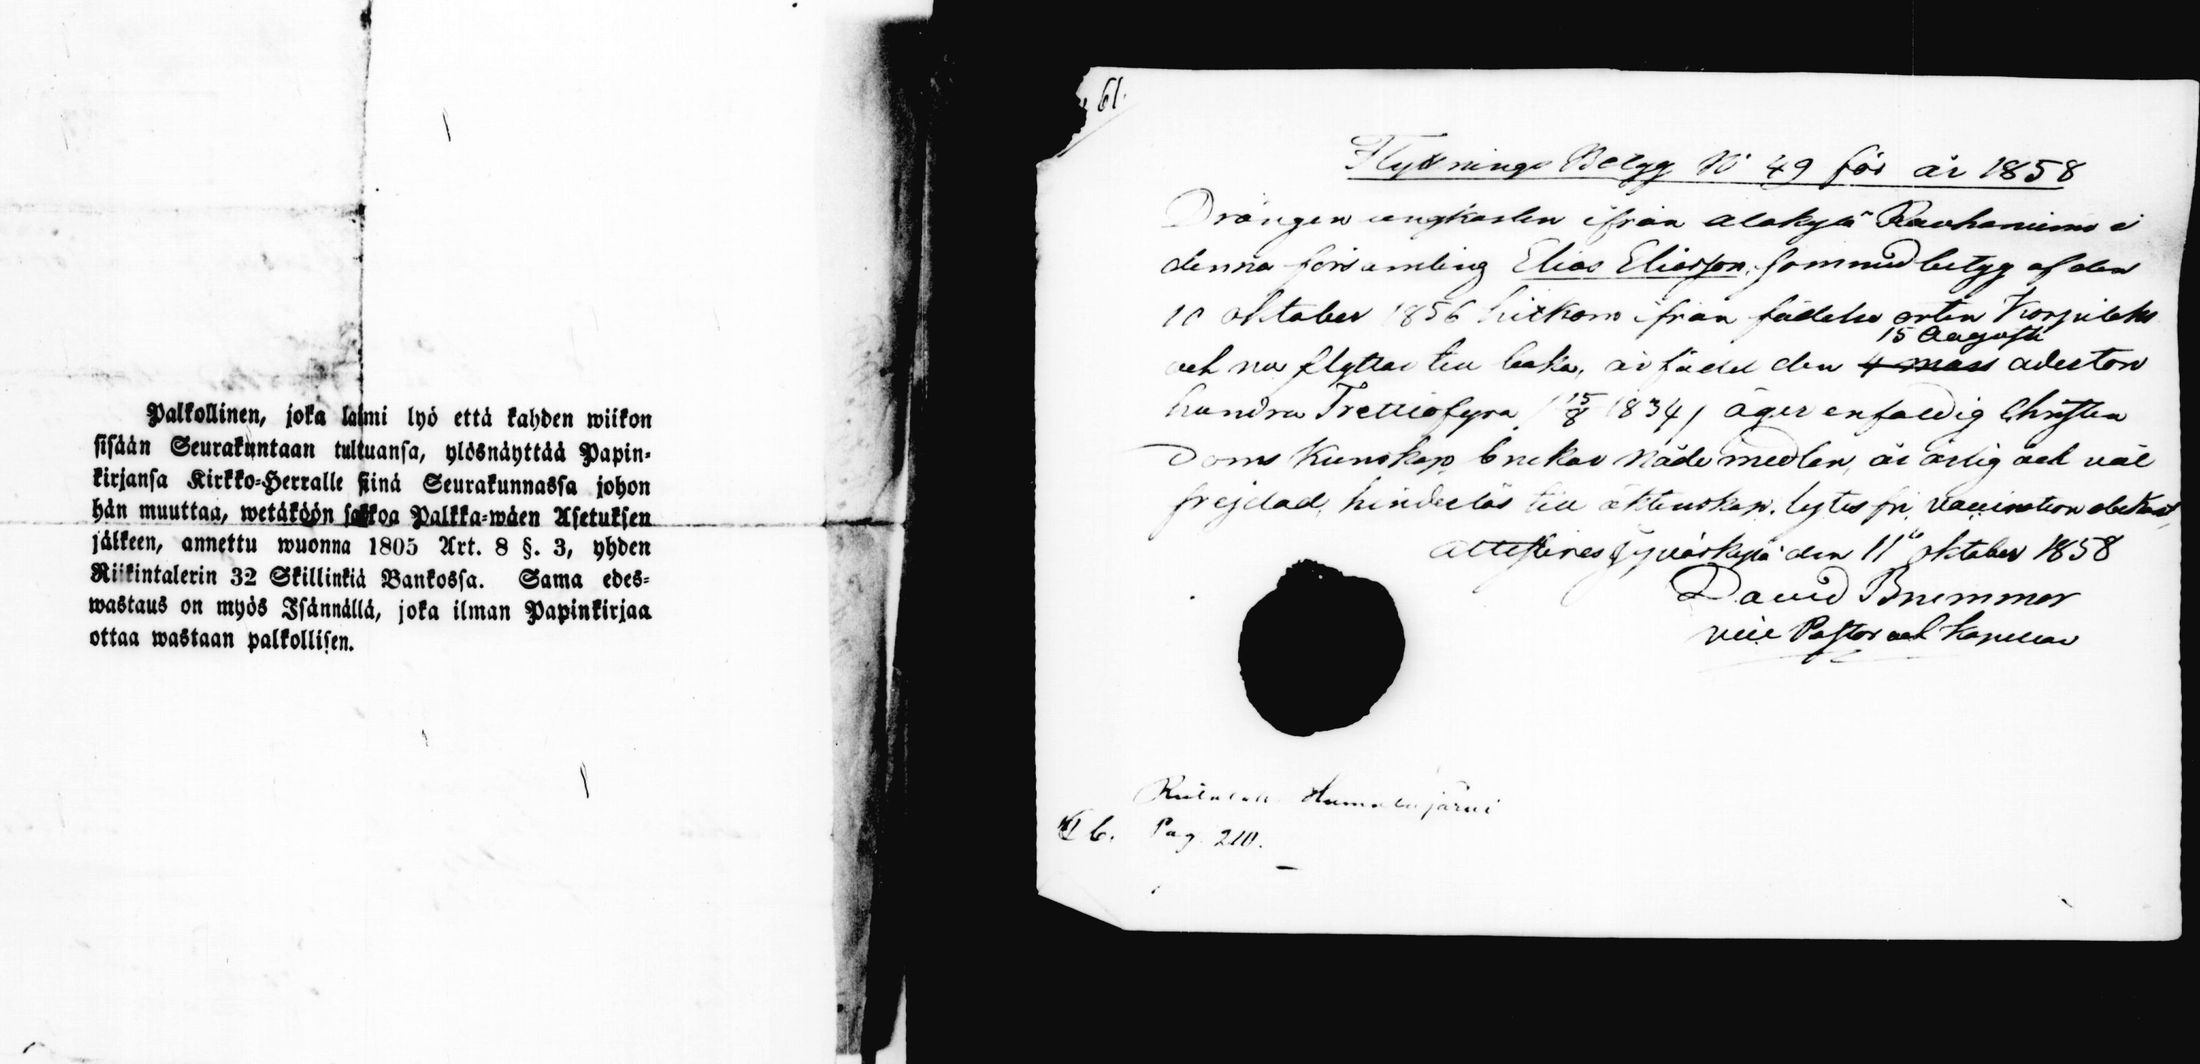 Palkollinen, joka laimi lyö että kahden wiikon
sisään Seurakuntaan tultuansa, ylösnäyttää Papin-
kirjansa Kirkko-Herralle siinä Seurakunnassa johon
hän muuttaa, wetäköön sakkoa Palkka-wäen Asetuksen
jälkeen, annettu wuonna 1805 Art. 8 §. 3, yhden
Riikintalerin 32 Skillinkiä Bankossa. Sama edes-
wastaus on myös Isännällä, joka ilman Papinkirjaa
ottaa wastaan palkollisen.
61.
Flyttnings Betyg No 49 för år 1858
Drängen ungkarlen ifrån Alakylä Rauhaniemi i
denna församling Elias Eliasson, som med betyg af den
10 oktober 1856 hitkom ifrån födelse orten Korpilaks
15 Augusti
och nu flyttar till baka, är född den 4 mars aderton
hundra Trettiofyra / 15/8 1834 / äger enfaldig Christen
Doms Kunskap, brukar Nåde medlen, är ärlig och väl
frejdad, hinderlös till äktenskap, lytes fri, vaccination obekant,
Attesteres Jyväskylä den 11te oktober 1858
David Brummer
vice Pastor och Kapellan
Humalajärvi
I b. Pag. 210.